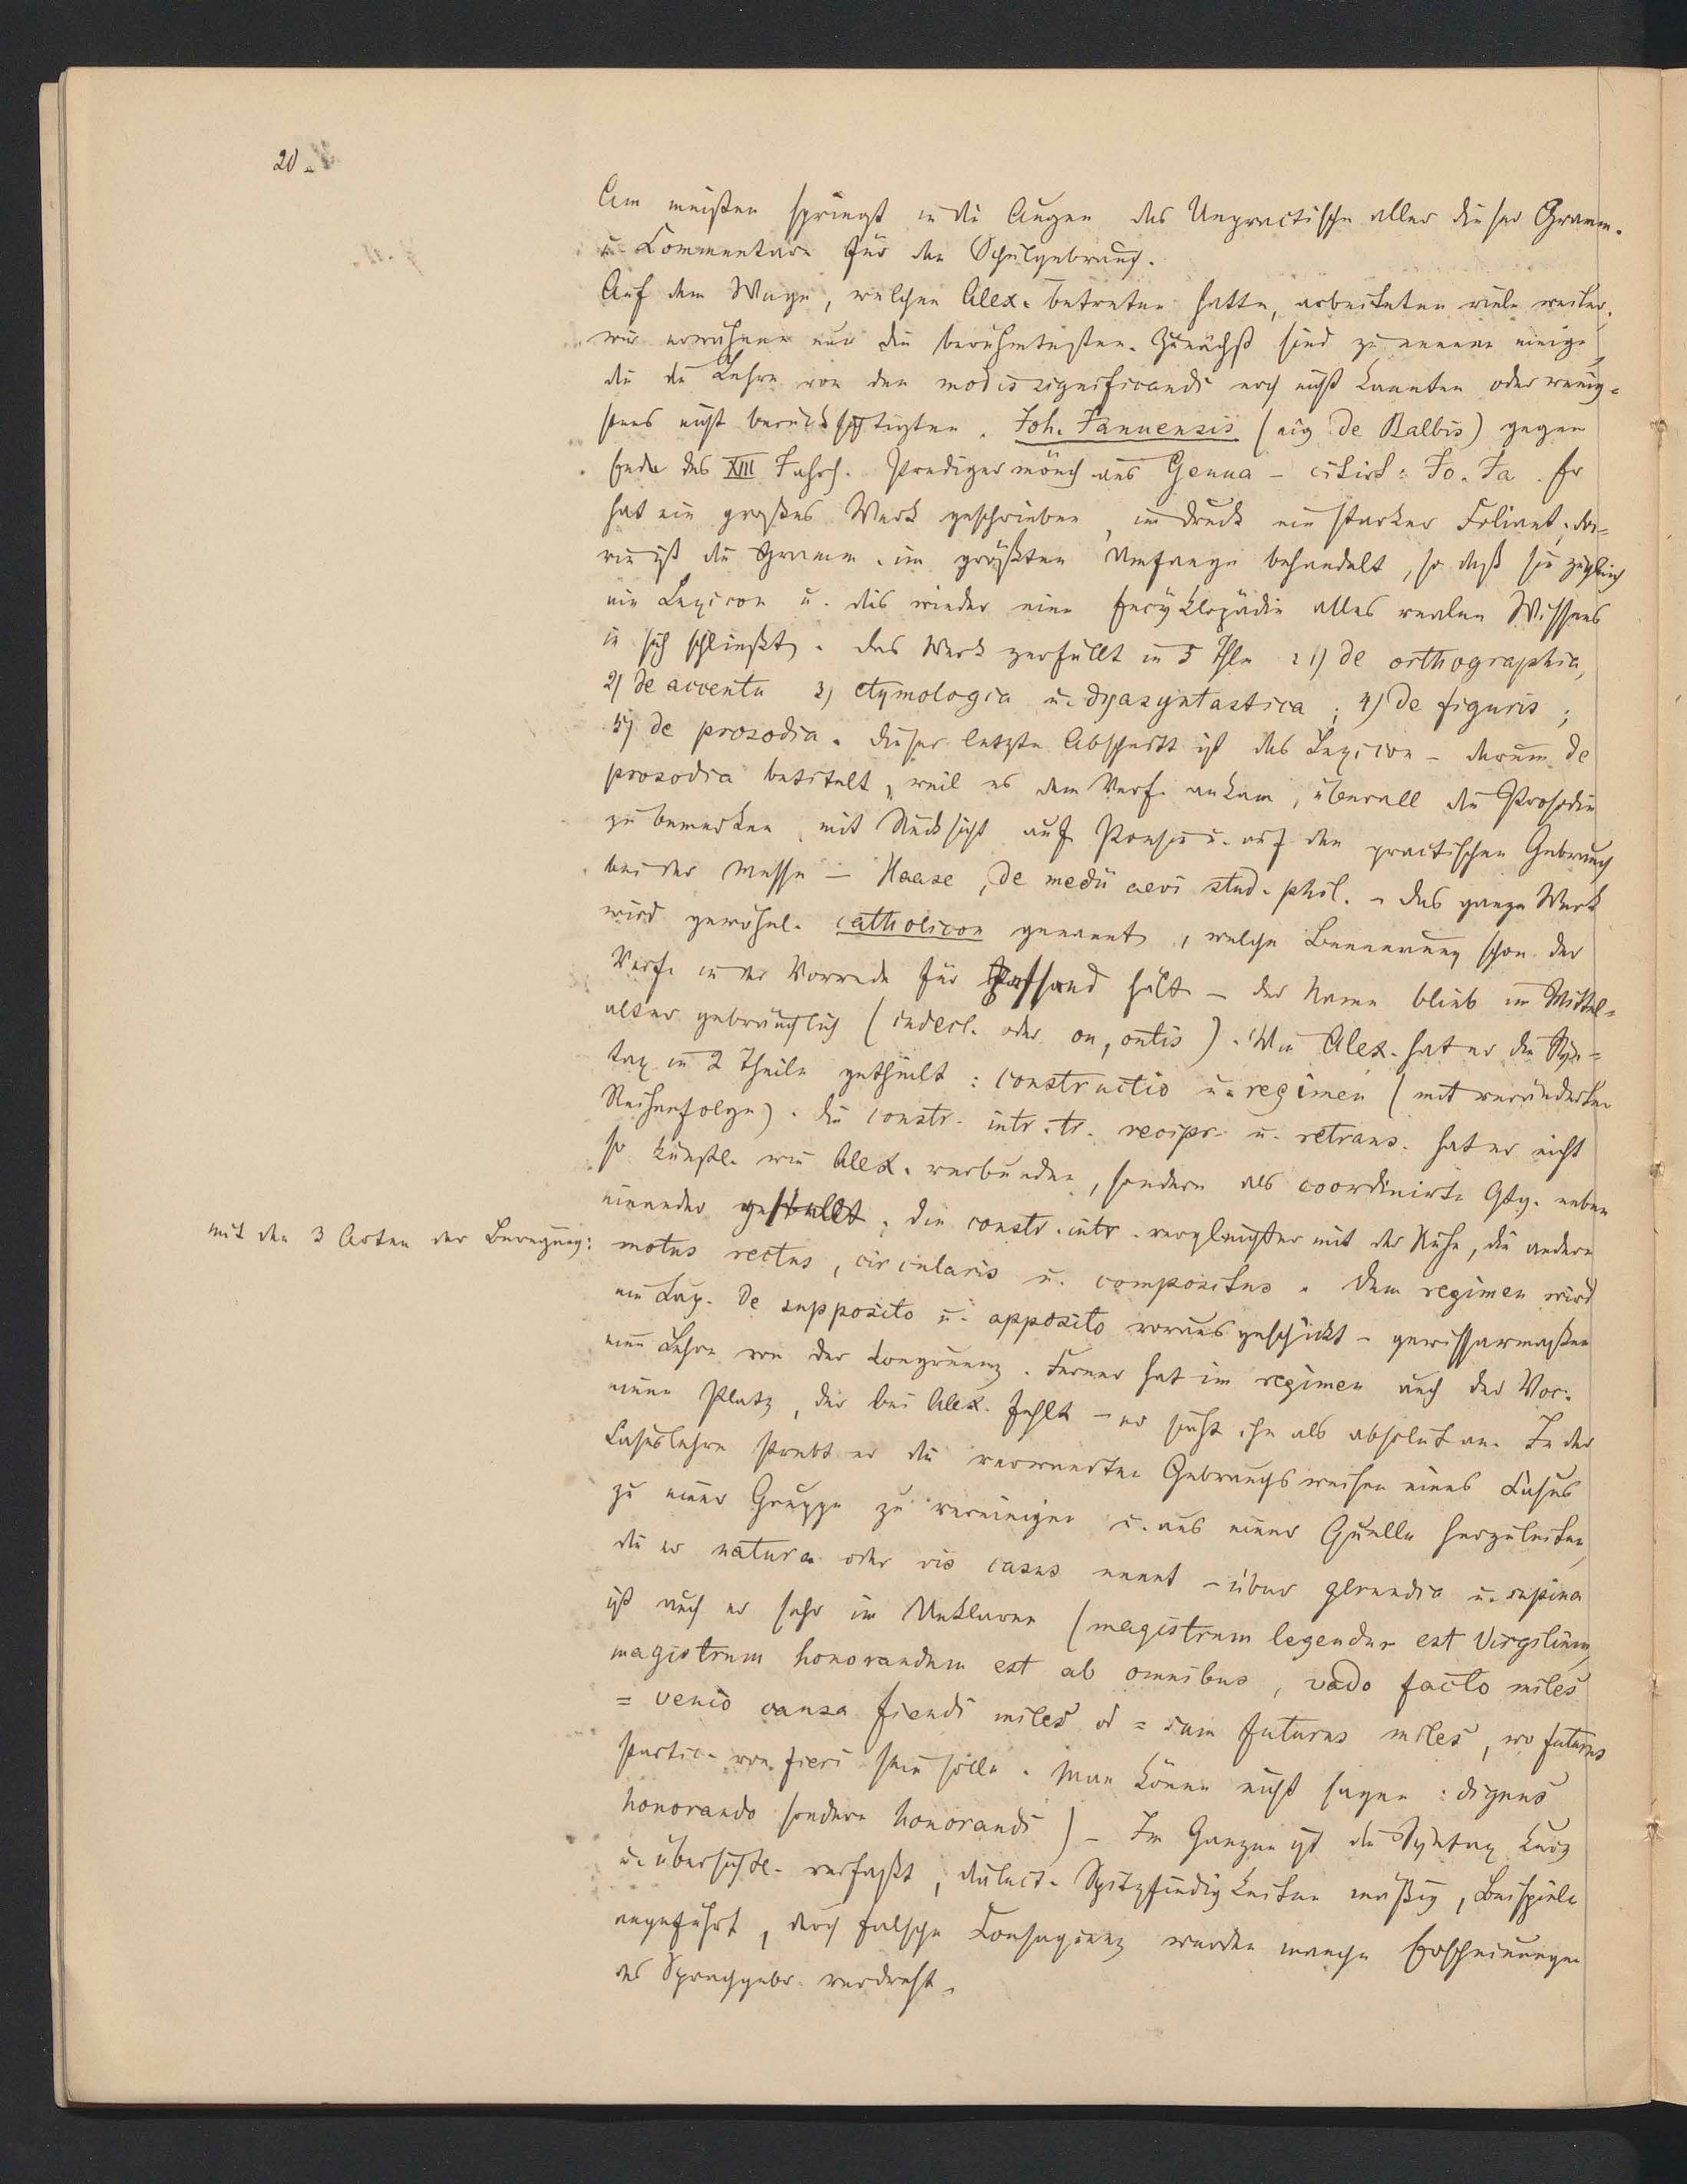 20.
Am meisten springt in die Augen das Unpractische aller dieser Gramm.
u. Commentare für den Schulgebrauch.
Auf dem Wege, welchen Alex. betreten hatte, arbeiteten viele weiter,
wir erwähnen nur die berühmtesten. Zunächst sind zu nennen einige,
die die Lehre von den modis significandi noch nicht kannten oder wenig-
stens nicht berücksichtigten. Joh. Januensis (eig de Balbis) gegen
Ende des XIII Jahrh. Predigermönch aus Genua – citirt: Jo. Ja. Er
hat ein großes Werk geschrieben, im Druck ein starker Foliant, da-
rin ist die Gramm. im größten Umfange behandelt, so daß sie zugleich
ein Lexicon u. dies wieder eine Encyklopädie alles realen Wissens
in sich schließt. Das Werk zerfällt in 5 Thle : 1) de orthographia,
2) de accentu 3) etymologia u. dyasyntastica ; 4) de figuris ;
5) de prosodia. Dieser letzte Abschnitt ist das Lexicon – darum de
prosodia betitelt, weil es dem Verf. ankam, überall die Prosodie
zu bemerken mit Rücksicht auf Poesie u. auf den practischen Gebrauch
bei der Messe – Haase, de medii aevi stud. phil. – Das ganze Werk
wird gewöhnl. catholicon genannt, welche Benennung schon der
Verf. in der Vorrede für passend hält – der Name blieb im Mittel-
alter gebräuchlich (indecl. oder on, ontis). Wie Alex. hat er die Syn-
tax in 2 Theile getheilt : constructio u. regimen (mit veränderter
Reihenfolge). Die constr. intr. tr. recipr. u. retrans. hat er nicht
so künstl. wie Alex. verbunden, sondern als coordinirte Gttg. neben
einander gestellt; die constr. intr. vergleicht er mit der Ruhe, die andern
mit den 3 Arten der Bewegung:
motus rectus, circularis u. compositus. Dem regimen wird
ein Cap. de supposito u. apposito vorausgeschickt – gewissermaßen
eine Lehre von der Congruenz. Ferner hat im regimen auch der Voc.
einen Platz, der bei Alex. fehlt – er sieht ihn als absolut an. In der
Casuslehre strebt er die verwandten Gebrauchsweisen eines Casus
zu einer Gruppe zu vereinigen u. aus einer Quelle herzuleiten,
die er natura oder vis casus nennt – über gerundia u. supina
ist auch er sehr im Unklaren (magistrum legendum est Virgilium,
magistrum honorandum est ab omnibus, vado facto miles
= venio causa fiendi miles od = sum futurus miles, wo futurus
Partic. von fieri sein solle. Man könne nicht sagen : dignus
honorando sondern honorandi) – Im Ganzen ist die Syntax kurz
u. übersichtl. verfaßt, dialect. Spitzfindigkeiten mäßig, Beispiele
angeführt, durch falsche Consequenz werden manche Erscheinungen
des Sprachgebr. verdreht.